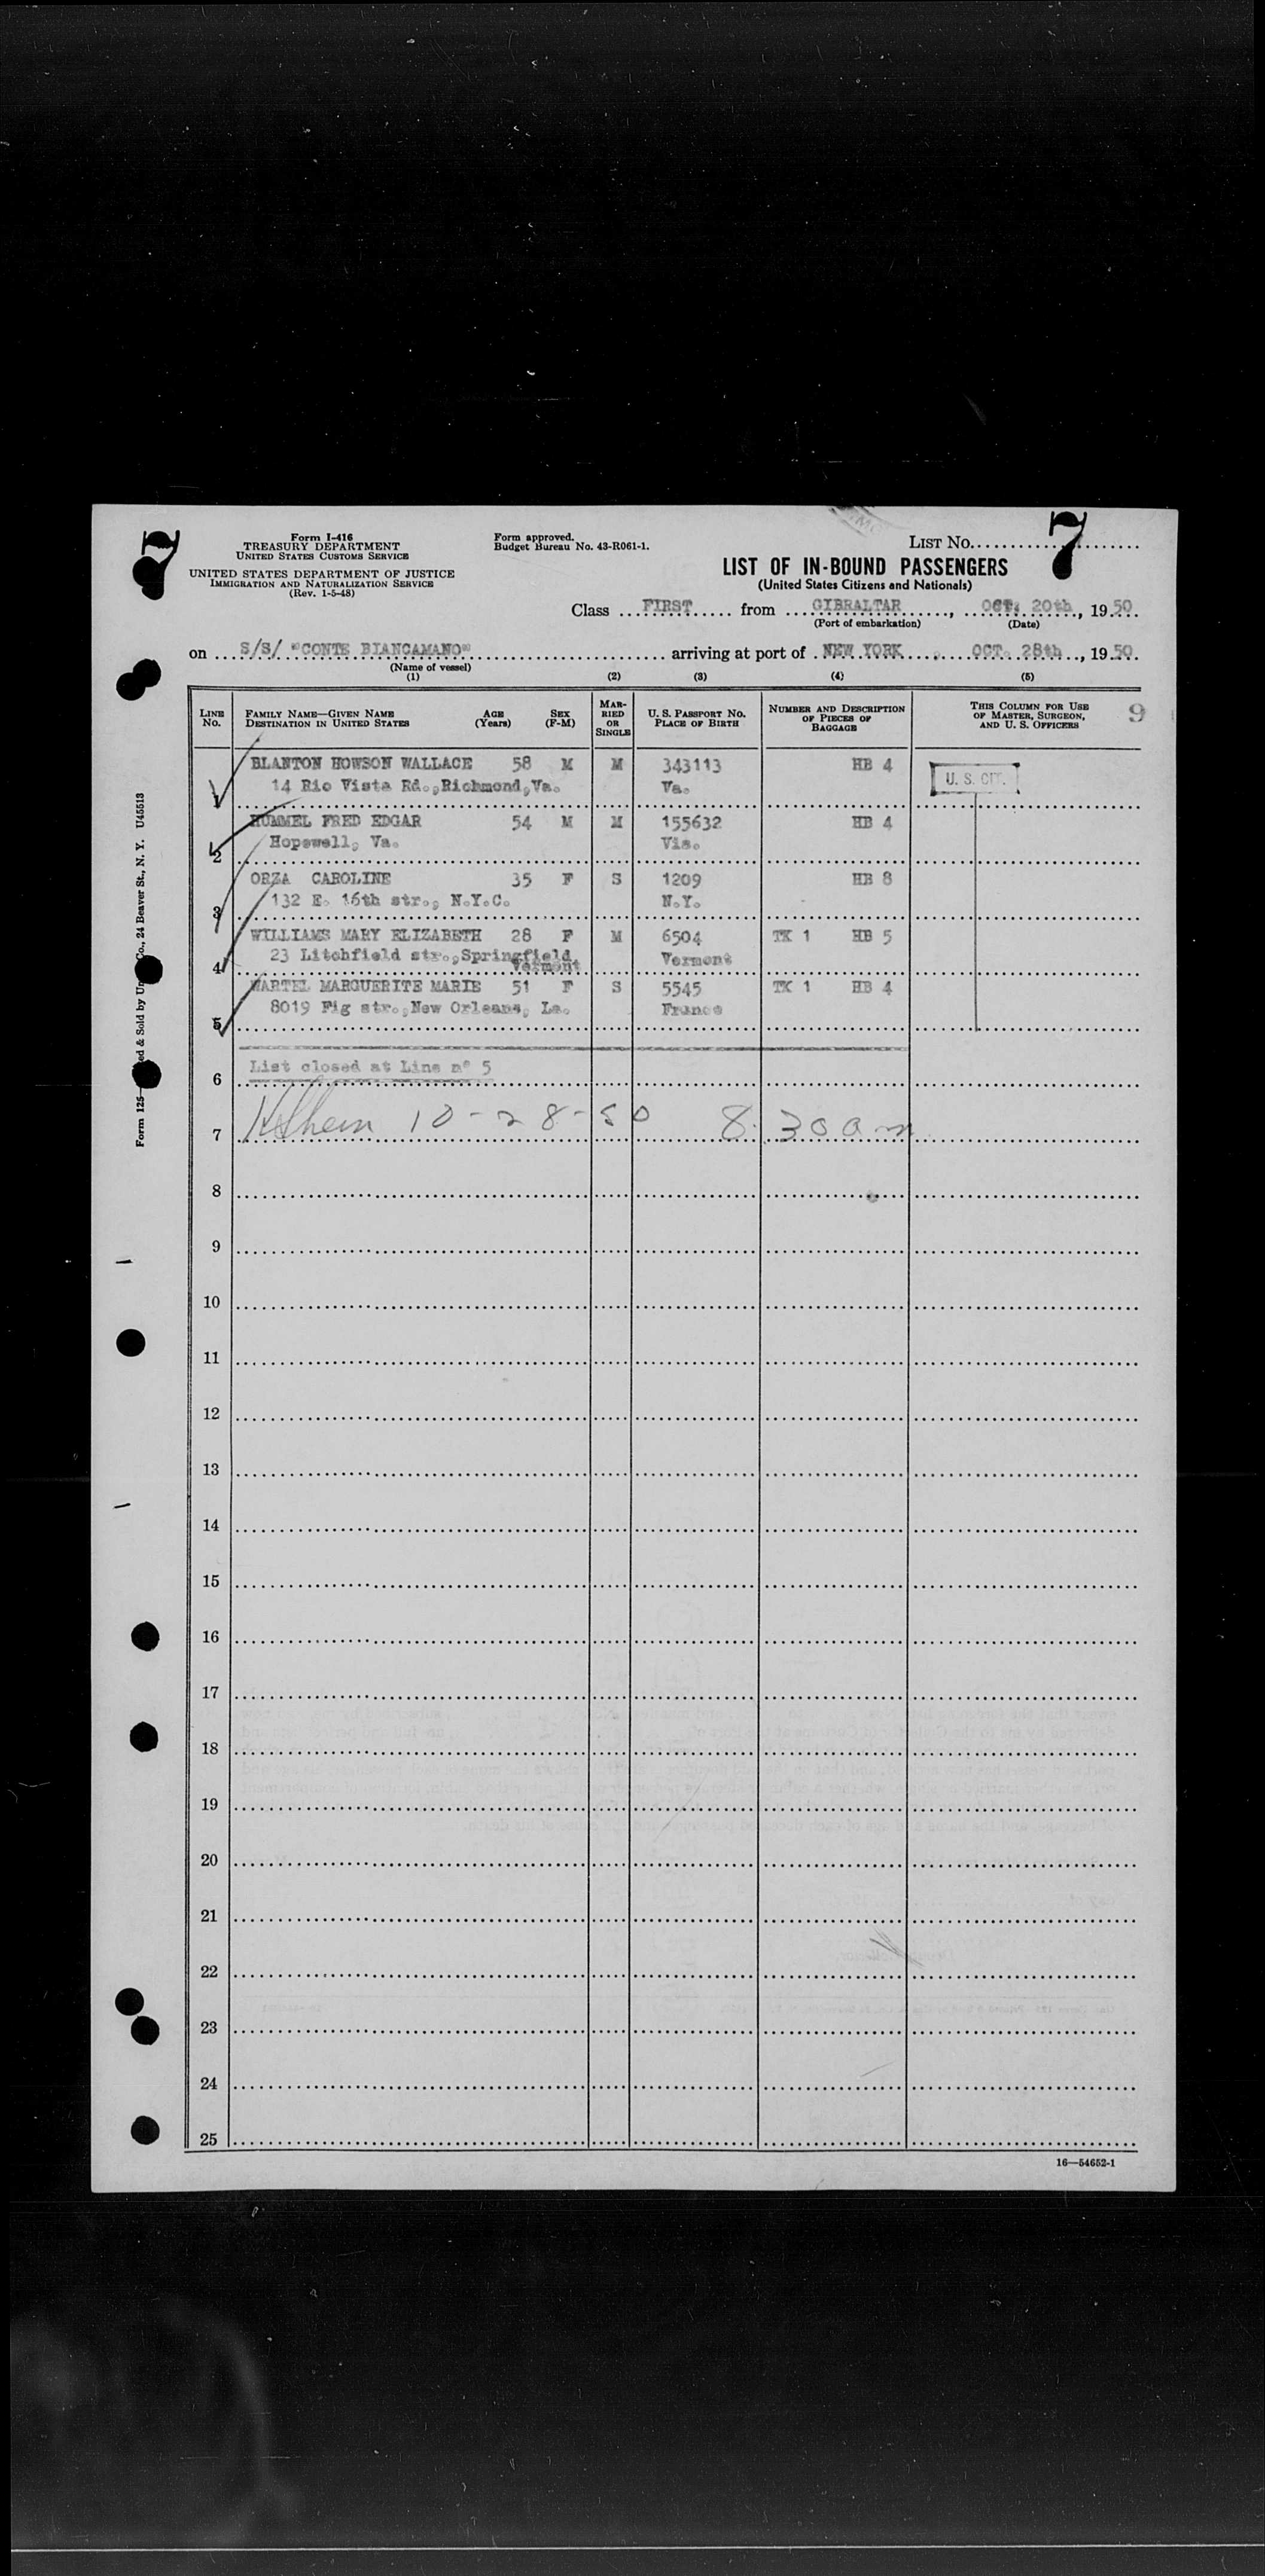 7
Form I-416
TREASURY DEPARTMENT
UNITED STATES CUSTOMS SERVICE
UNITED STATES DEPARTMENT OF JUSTICE
IMMIGRATION AND NATURALIZATION SERVICE
(Rev. 1-5-48)
Form approved.
Budget Bureau No. 43-R061-1.
LIST NO. 7
LIST OF IN-BOUND PASSENGERS
(United States Citizens and Nationals)
Class FIRST from GIBRALTAR, OCT. 20th, 1950
(Port of embarkation) (Date)
on S/S/ "CONTE BIANCAMANO" arriving at port of NEW YORK, OCT. 28th, 1950
(Name of vessel)
(1) (2) (3) (4) (5)
LINE NO. FAMILY NAME—GIVEN NAME DESTINATION IN UNITED STATES AGE (Years) SEX (F-M) MARRIED OR SINGLE U. S. PASSPORT NO. PLACE OF BIRTH NUMBER AND DESCRIPTION OF PIECES OF BAGGAGE THIS COLUMN FOR USE OF MASTER, SURGEON, AND U. S. OFFICERS 9
BLANTON HOWSON WALLACE 58 M M 343113 HB 4 U. S. CIT.
1 14 Rio Vista Rd.,Richmond,Va. Va.
HUMMEL FRED EDGAR 54 M M 155632 HB 4
2 Hopewell, Va. Vis.
ORZA CAROLINE 35 F S 1209 HB 8
3 132 E. 16th str., N.Y.C. N.Y.
WILLIAMS MARY ELIZABETH 28 F M 6504 TK 1 HB 5
4 23 Litchfield str.,Springfield Vermont Vermont
MARTEL MARGUERITE MARIE 51 F S 5545 TK 1 HB 4
5 8019 Fig str.,New Orleans, La. France
6 List closed at Line n° 5
7 10-28-50 8.30 am
8
9
10
11
12
13
14
15
16
17
18
19
20
21
22
23
24
25
16—54652-1
Form 125— ed & Sold by Un Co., 24 Beaver St., N. Y. U45513